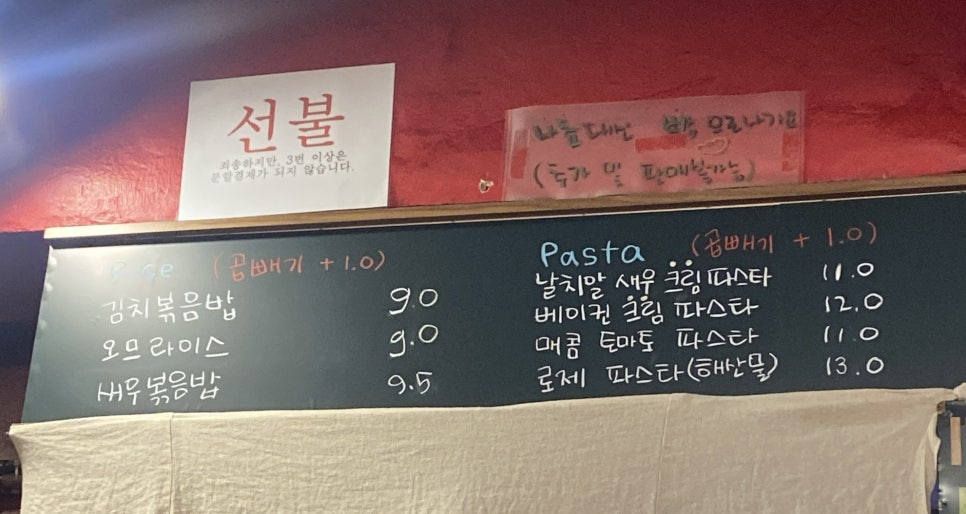 선불
죄송하지만, 3번 이상은
분할결제가 되지 않습니다.
(추가 및 판매불가능)
Rice (곱빼기 + 1.0)
김치볶음밥 9.0
오므라이스 9.0
새우볶음밥 9.5
Pasta (곱빼기 + 1.0)
날치알 새우 크림 파스타 11.0
베이컨 크림 파스타 12.0
매콤 토마토 파스타 11.0
로제 파스타(해산물) 13.0